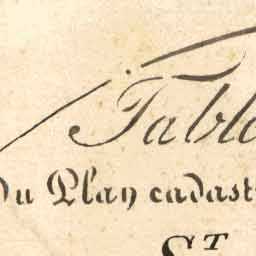 Tabl
Du Plan cadast
ST